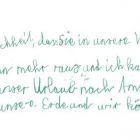 chkeit, dass Sie in unsere W
n mehr raus und ich ka
nser Urlaub nach Am
unsere Erde und wir kö